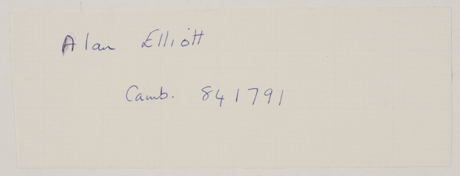 Alan Elliott
Camb. 841791